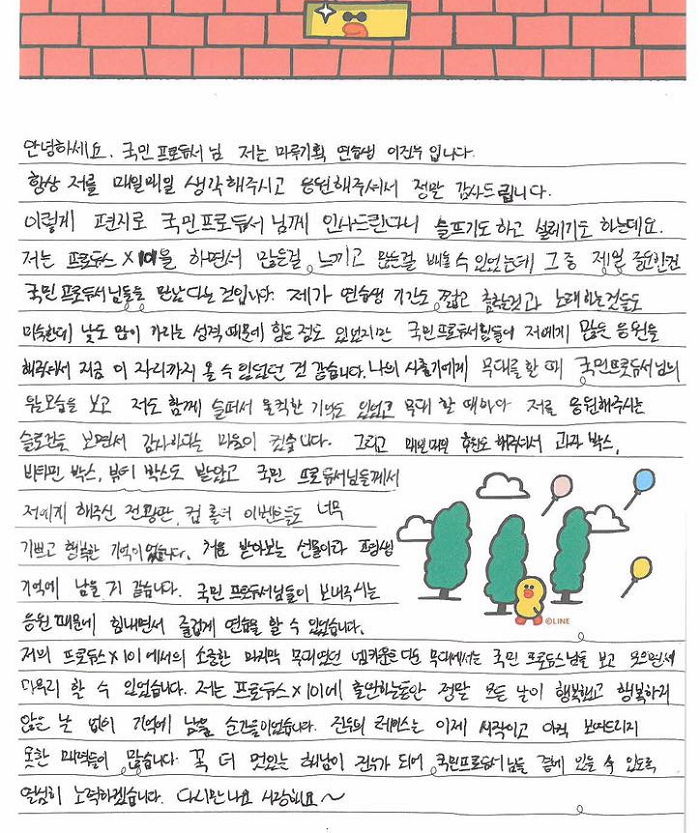 안녕하세요. 국민 프로듀서님 저는 마루기획 연습생 이진우입니다.
항상 저를 매일매일 생각해주시고 응원해주셔서 정말 감사드립니다.
이렇게 편지로 국민프로듀서님께 인사드린다니 슬프기도 하고 설레기도 하는데요.
저는 프로듀스X101을 하면서 많은걸 느끼고 많은걸 배울 수 있었는데 그 중 제일 중요한건
국민 프로듀서님들을 만났다는 것입니다. 제가 연습생 기간도 짧고 춤추는것과 노래하는것들도
미숙한데 낯도 많이 가리는 성격 때문에 힘든 점도 있었지만 국민프로듀서님들이 저에게 많은 응원을
해주셔서 지금 이 자리까지 올 수 있었던 것 같습니다. 나의 사춘기에게 무대를 할 때 국민프로듀서님의
우는모습을 보고 저도 함께 슬퍼서 울컥한 기억도 있었고 무대 할 때마다 저를 응원해주시는
슬로건을 보면서 감사하다는 마음이 컸습니다. 그리고 매일매일 후원도 해주셔서 과자 박스,
비타민 박스, 뷰티 박스도 받았고 국민 프로듀서님들께서
저에게 해주신 전광판, 컵 홀더 이벤트들도 너무
기쁘고 행복한 기억이었습니다. 처음 받아보는 선물이라 평생
기억에 남을 거 같습니다. 국민 프로듀서님들이 보내주시는
응원 때문에 힘내면서 즐겁게 연습을 할 수 있었습니다.
저의 프로듀스X101에서의 소중한 마지막 무대였던 무대에서는 국민 프로듀스님을 보고 웃으면서
마무리 할 수 있었습니다. 저는 프로듀스X101에 출연하는동안 정말 모든 날이 행복했고 행복하지
않은 날 없이 기억에 남을 순간들이었습니다. 진우의 레이스는 이제 시작이고 아직 보여드리지
못한 매력들이 많습니다. 꼭 더 멋있는 해남이 진우가 되어 국민프로듀서님을 곁에 있을 수 있도록
열심히 노력하겠습니다. 다시만나요 사랑해요~
©LINE